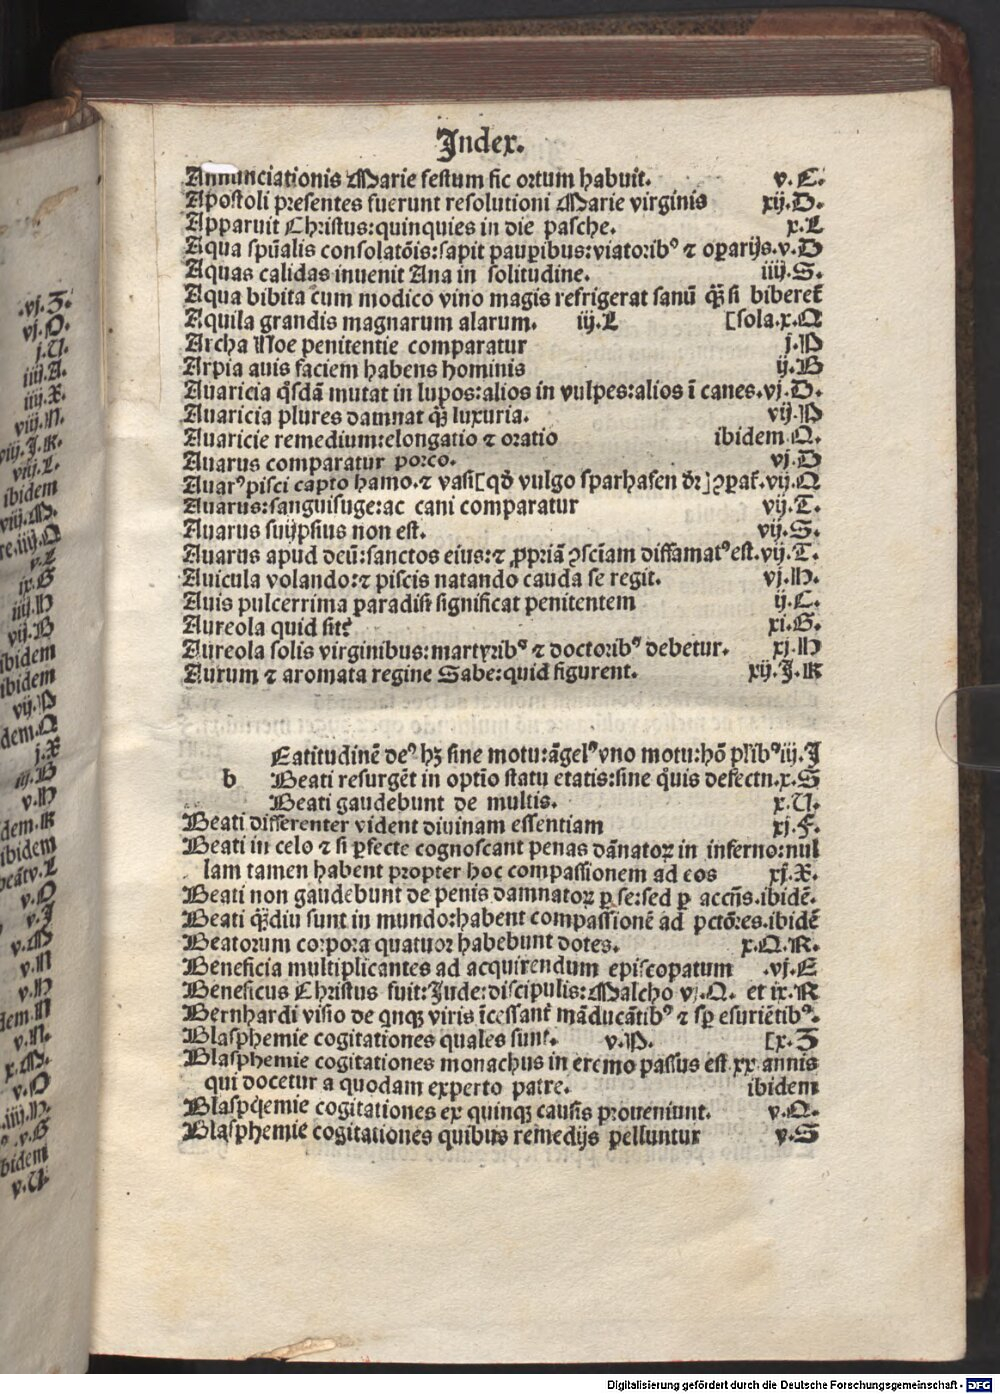 Index.
Annunciationis Marie festum sic ortum habuit. v.C.
Apostoli presentes fuerunt resolutioni Marie virginis xij.D.
Apparuit Christus:quinquies in die pasche. x.L
Aqua spūalis consolatōis:sapit pauꝑibus:viatoribꝰ ⁊ oꝑarijs.v.D
Aquas calidas inuenit Ana in solitudine. iiij.S.
Aqua bibita cum modico vino magis refrigerat sanū q̄ꝫ si biberet̄
Aquila grandis magnarum alarum. iij.L [sola.x.Q
Archa Noe penitentie comparatur j.P
Arpia auis faciem habens hominis ij.B
Auaricia q̄sdā mutat in lupos:alios in vulpes:alios ī canes.vj.D.
Auaricia plures damnat q̄ꝫ luxuria. vij.P
Auaricie remedium:elongatio ⁊ oratio ibidem Q.
Auarus comparatur porco. vj.D
Auarꝰpisci capto hamo.⁊ vasi[qđ vulgo sparhafen dr̄]ꝯꝑat̄.vij.Q
Auarus:sanguisuge:ac cani comparatur vij.T.
Auarus suijpsius non est. vij.S.
Auarus apud deū:sanctos eius:⁊ ꝓpriā ꝯsciam diffamatꝰest.vij.T.
Auicula volando:⁊ piscis natando cauda se regit. vj.H.
Auis pulcerrima paradisi significat penitentem ij.C.
Aureola quid sit? xi.G.
Aureola solis virginibus:martyribꝰ ⁊ doctoribꝰ debetur. xj.H
Aurum ⁊ aromata regine Sabe:quid figurent. xij.J.K
Eatitudinē deꝰ hꝫ sine motu:āgelꝰvno motu:hō pl'ibꝰiij.J
b Beati resurgēt in optīo statu etatis:sine q̄uis defectn.x.S
Beati gaudebunt de multis. x.U.
Beati differenter vident diuinam essentiam xj.F.
Beati in celo ⁊ si ꝑfecte cognoscant penas dānatoꝝ in inferno:nul
lam tamen habent propter hoc compassionem ad eos xj.X.
Beati non gaudebunt de penis damnatoꝝ ꝑ se:sed ꝑ accn̄s.ibidē.
Beati q̄ꝫdiu sunt in mundo:habent compassionē ad pctōres.ibidē
Beatorum corpora quatuor habebunt dotes. x.Q.R.
Beneficia multiplicantes ad acquirendum episcopatum .vj.E
Beneficus Christus fuit:Jude:discipulis:Malcho vj.Q. et ix.R
Bernhardi visio de qnqꝫ viris īcessant̄ māducātibꝰ ⁊ sꝑ esuriētibꝰ.
Blasphemie cogitationes quales sunt. v.P. [x.Z
Blasphemie cogitationes monachus in eremo passus est xx annis
qui docetur a quodam experto patre. ibidem
Blaspqemie cogitationes ex quinqꝫ causis proueniunt. v.Q.
Blasphemie cogitationes quibus remedijs pelluntur v.S
.vj.Z.
vj.O.
j.U.
iiij.A.
iiij.X.
viij.N.
viij.L.
ibidem
viij.M.
v.L
ix.G
iiij.H
vij.B
ibidem
ibidem
vij.P
j.X
v.H
ibidem
v.O
v.J
v.M
v.N
v.H
v.N.
x.M.
v.O
v.U
Digitalisierung gefördert durch die Deutsche Forschungsgemeinschaft - DFG